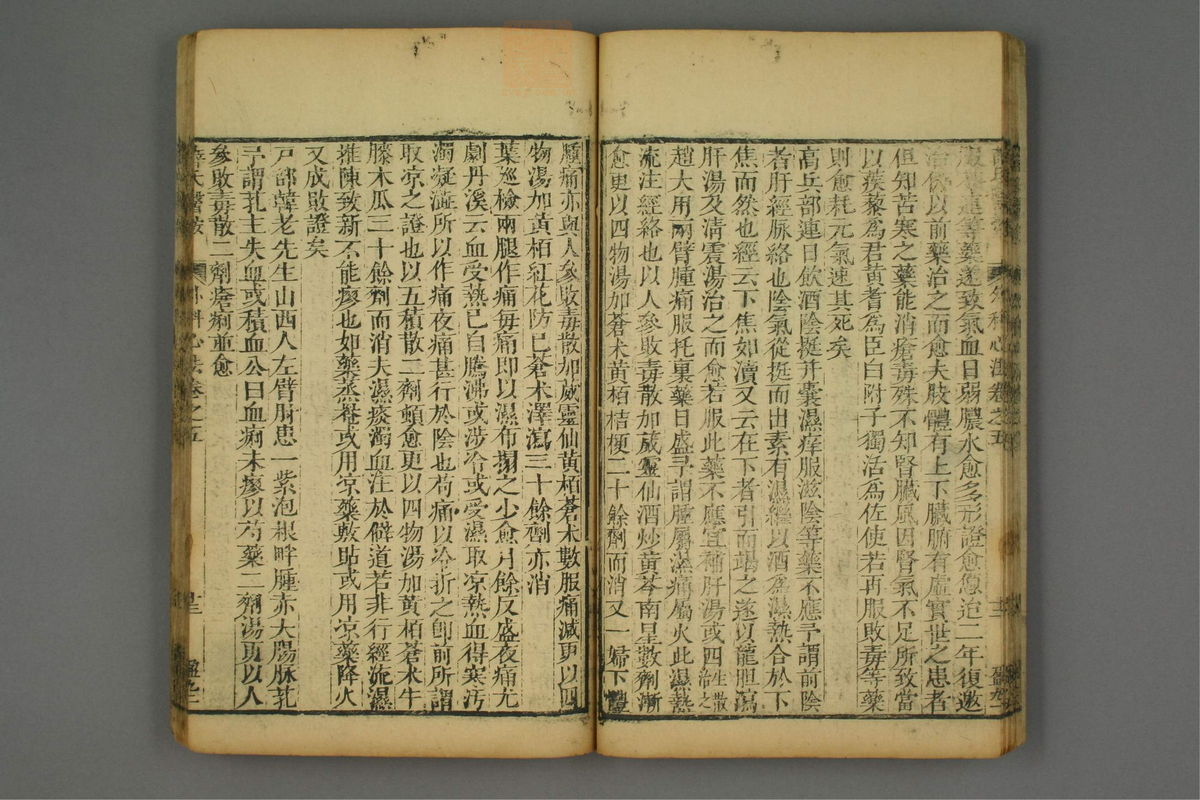 薛氏醫案 外科心法卷之五
連等藥遂致氣血日弱膿水愈多形證愈憊迨二年復邀
治仍以前藥治之而愈夫肢體有上下臟腑有虛實世之患者
但知苦寒之藥能消瘡毒殊不知腎臟風因腎氣不足所致當
以蒺藜爲君黃耆爲臣白附子獨活爲佐使若再服敗毒等藥
則愈耗元氣速其死矣
高兵部連日飲酒陰挺并囊濕痒服滋陰等藥不應予謂前陰
者肝經脉絡也陰氣從挺而出素有濕繼以酒爲濕熱合於下
焦而然也經云下焦如瀆又云在下者引而竭之遂以龍胆瀉
肝湯及清震湯治之而愈若服此藥不應宜補肝湯或四生散治之
趙大用兩臂腫痛服托裏藥日盛予謂腫屬濕痛屬火此濕熱
流注經絡也以人參敗毒散加葳靈仙酒炒黃芩南星數劑漸
愈更以四物湯加蒼术黃栢桔梗二十餘劑而消又一婦下體
腫痛亦與人參敗毒散加葳靈仙黃栢蒼术數服痛減更以四
物湯加黃栢紅花防已蒼术澤瀉三十餘劑亦消
葉巡檢兩腿作痛每痛即以濕布搨之少愈月餘反盛夜痛尤
劇丹溪云血受熱已自騰沸或涉冷或受濕取凉熱血得寒汚
濁凝澁所以作痛夜痛甚行於陰也苟痛以冷折之卽前所謂
取凉之證也以五積散二劑頓愈更以四物湯加黃栢蒼术牛
膝木瓜三十餘劑而消夫濕痰濁血注於僻道若非行經流濕
推陳致新不能瘳也如藥蒸罨或用凉藥敷貼或用凉藥降火
又成敗證矣
戸部韓老先生山西人左臂肘患一紫泡根畔腫赤大腸脉芤
予謂芤主失血或積血公曰血痢未瘳以芍藥二劑湯更以人
參敗毒散二劑瘡痢並愈
薛氏醫案 外科心法卷之五